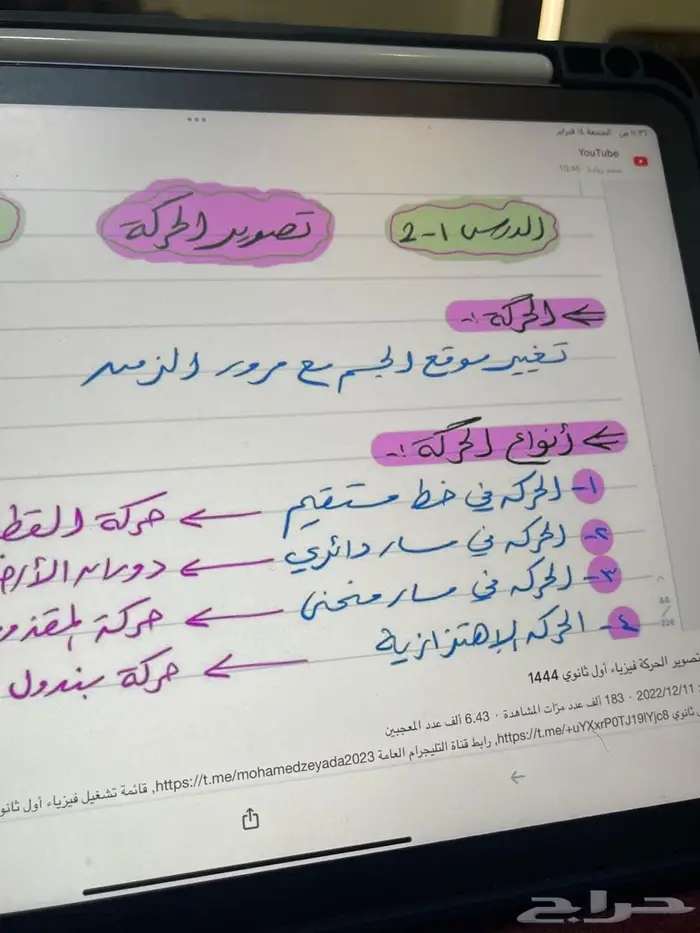 ١١:٣١ ص الجمعة ١٤ فبراير
YouTube
محمد زيادة 10:46
الدرس 1-2
تصوير الحركة
الحركة :-
تغيير موقع الجسم مع مرور الزمن
أنواع الحركة :-
١- الحركة في خط مستقيم ← حركة القط
٢- الحركة في مسار دائري ← دوران الأرض
٣- الحركة في مسار منحنى ← حركة المقذو
٤- الحركة الاهتزازية ← حركة بندول
تصوير الحركة فيزياء أول ثانوي 1444
2022/12/11 · 183 ألف عدد مرّات المشاهدة · 6.43 ألف عدد المعجبين
ثانوي https://t.me/+uYXxrP0TJ19lYjc8, رابط قناة التليجرام العامة https://t.me/mohamedzeyada2023, قائمة تشغيل فيزياء أول ثانو
حراج